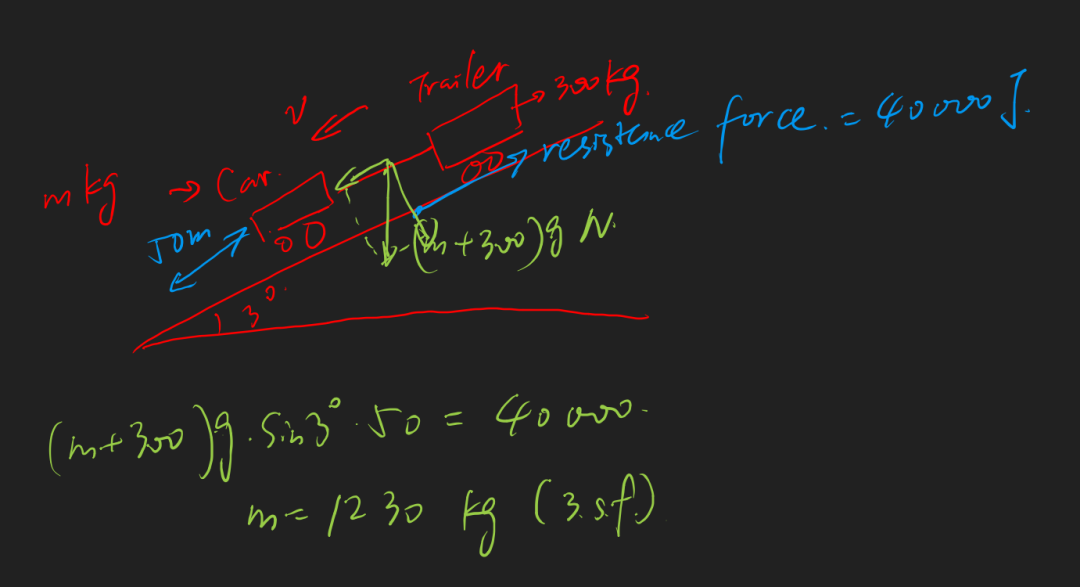 Trailer → 300kg.
v
resistance force. = 40000 J.
m kg → Car.
50m
(m+300)g N.
3°
(m+300)g · Sin3° · 50 = 40000.
m = 1230 kg (3.s.f.)